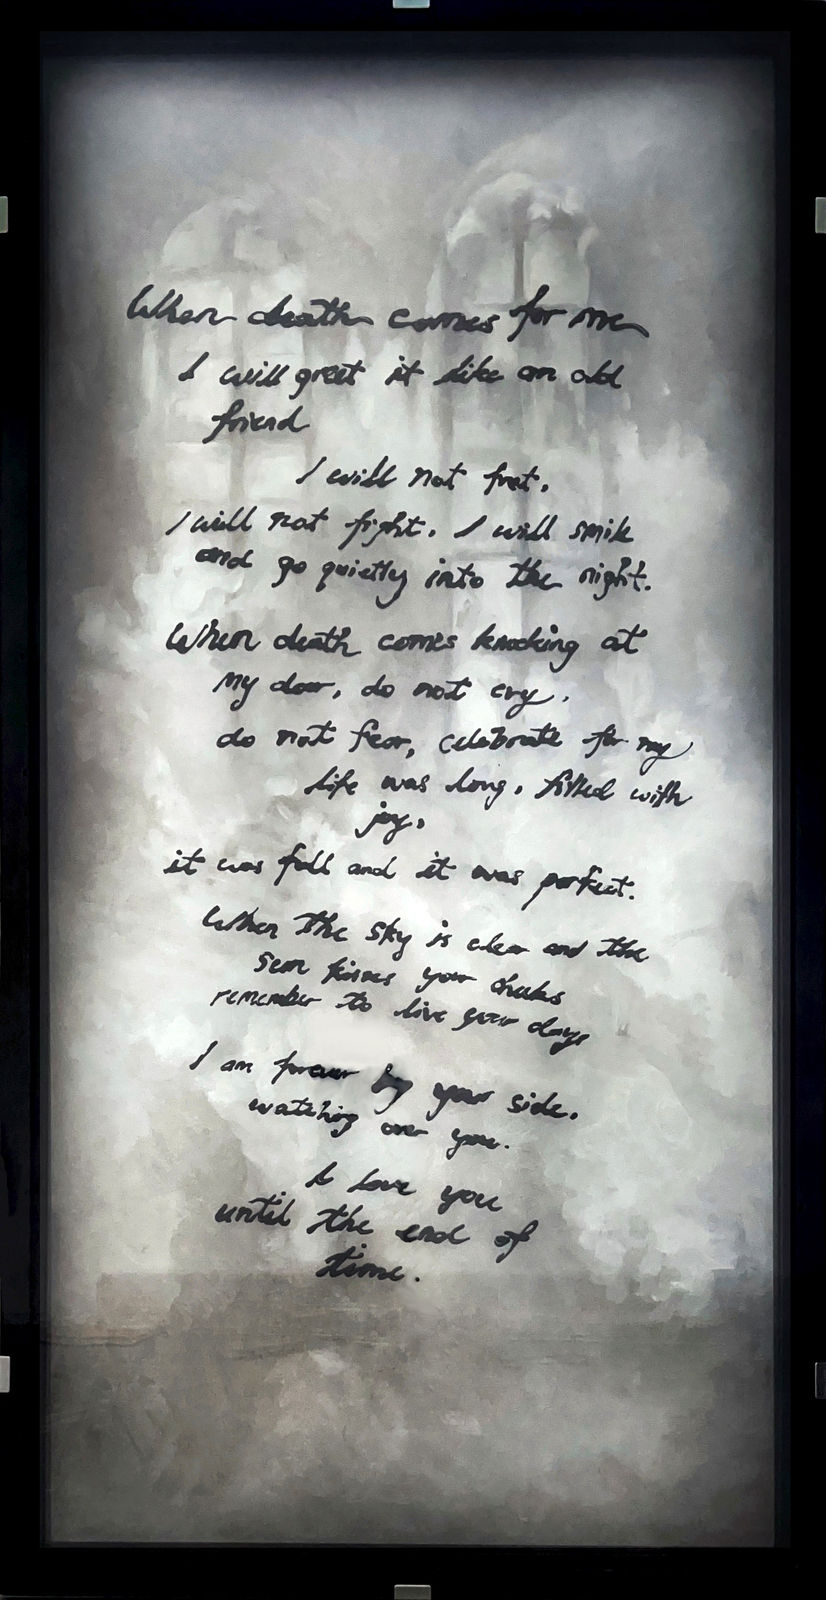 When death comes for me
I will greet it like an old
friend
I will not fret,
I will not fight. I will smile
and go quietly into the night.
When death comes knocking at
my door, do not cry.
do not fear, celebrate for my
life was long, filled with
joy,
it was full and it was perfect.
When the sky is clear and the
sun kisses your cheeks
remember to live your days
I am forever by your side.
watching over you.
I love you
until the end of
time.